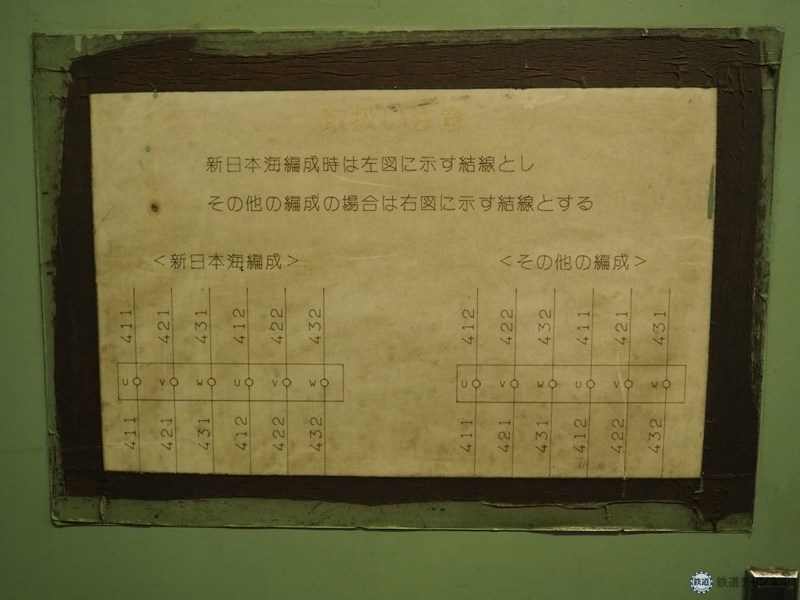 取扱い注意
新日本海編成時は左図に示す結線とし
その他の編成の場合は右図に示す結線とする
＜新日本海編成＞
411 421 431 412 422 432
U V W U V W
411 421 431 412 422 432
＜その他の編成＞
412 422 432 411 421 431
U V W U V W
411 421 431 412 422 432
鉄道